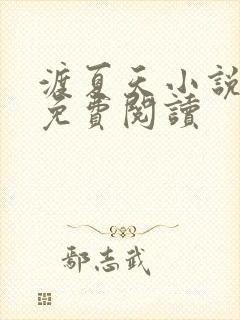 渡夏天小説
免費閱讀
鄢志武